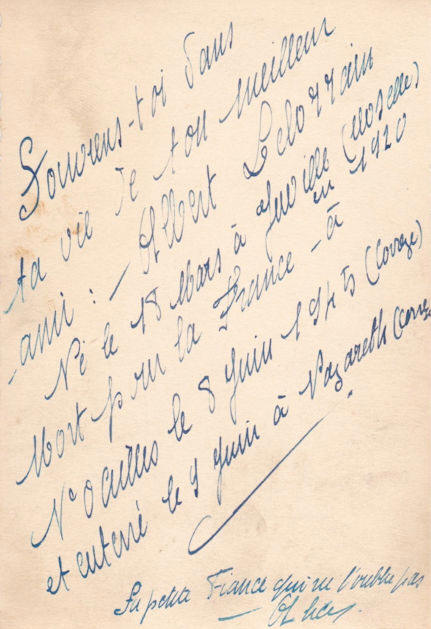 Souviens-toi dans
ta vie de ton meilleur
ami : - Albert Lelorrain
Né le 18 Mars à Juville (Moselle)
en 1920
Mort pour la France - à
Noailles le 8 Juin 1945 (Corrèze)
et enterré le 9 Juin à Nazareth (Corrèze
Sa petite France qui ne l'oublie pas